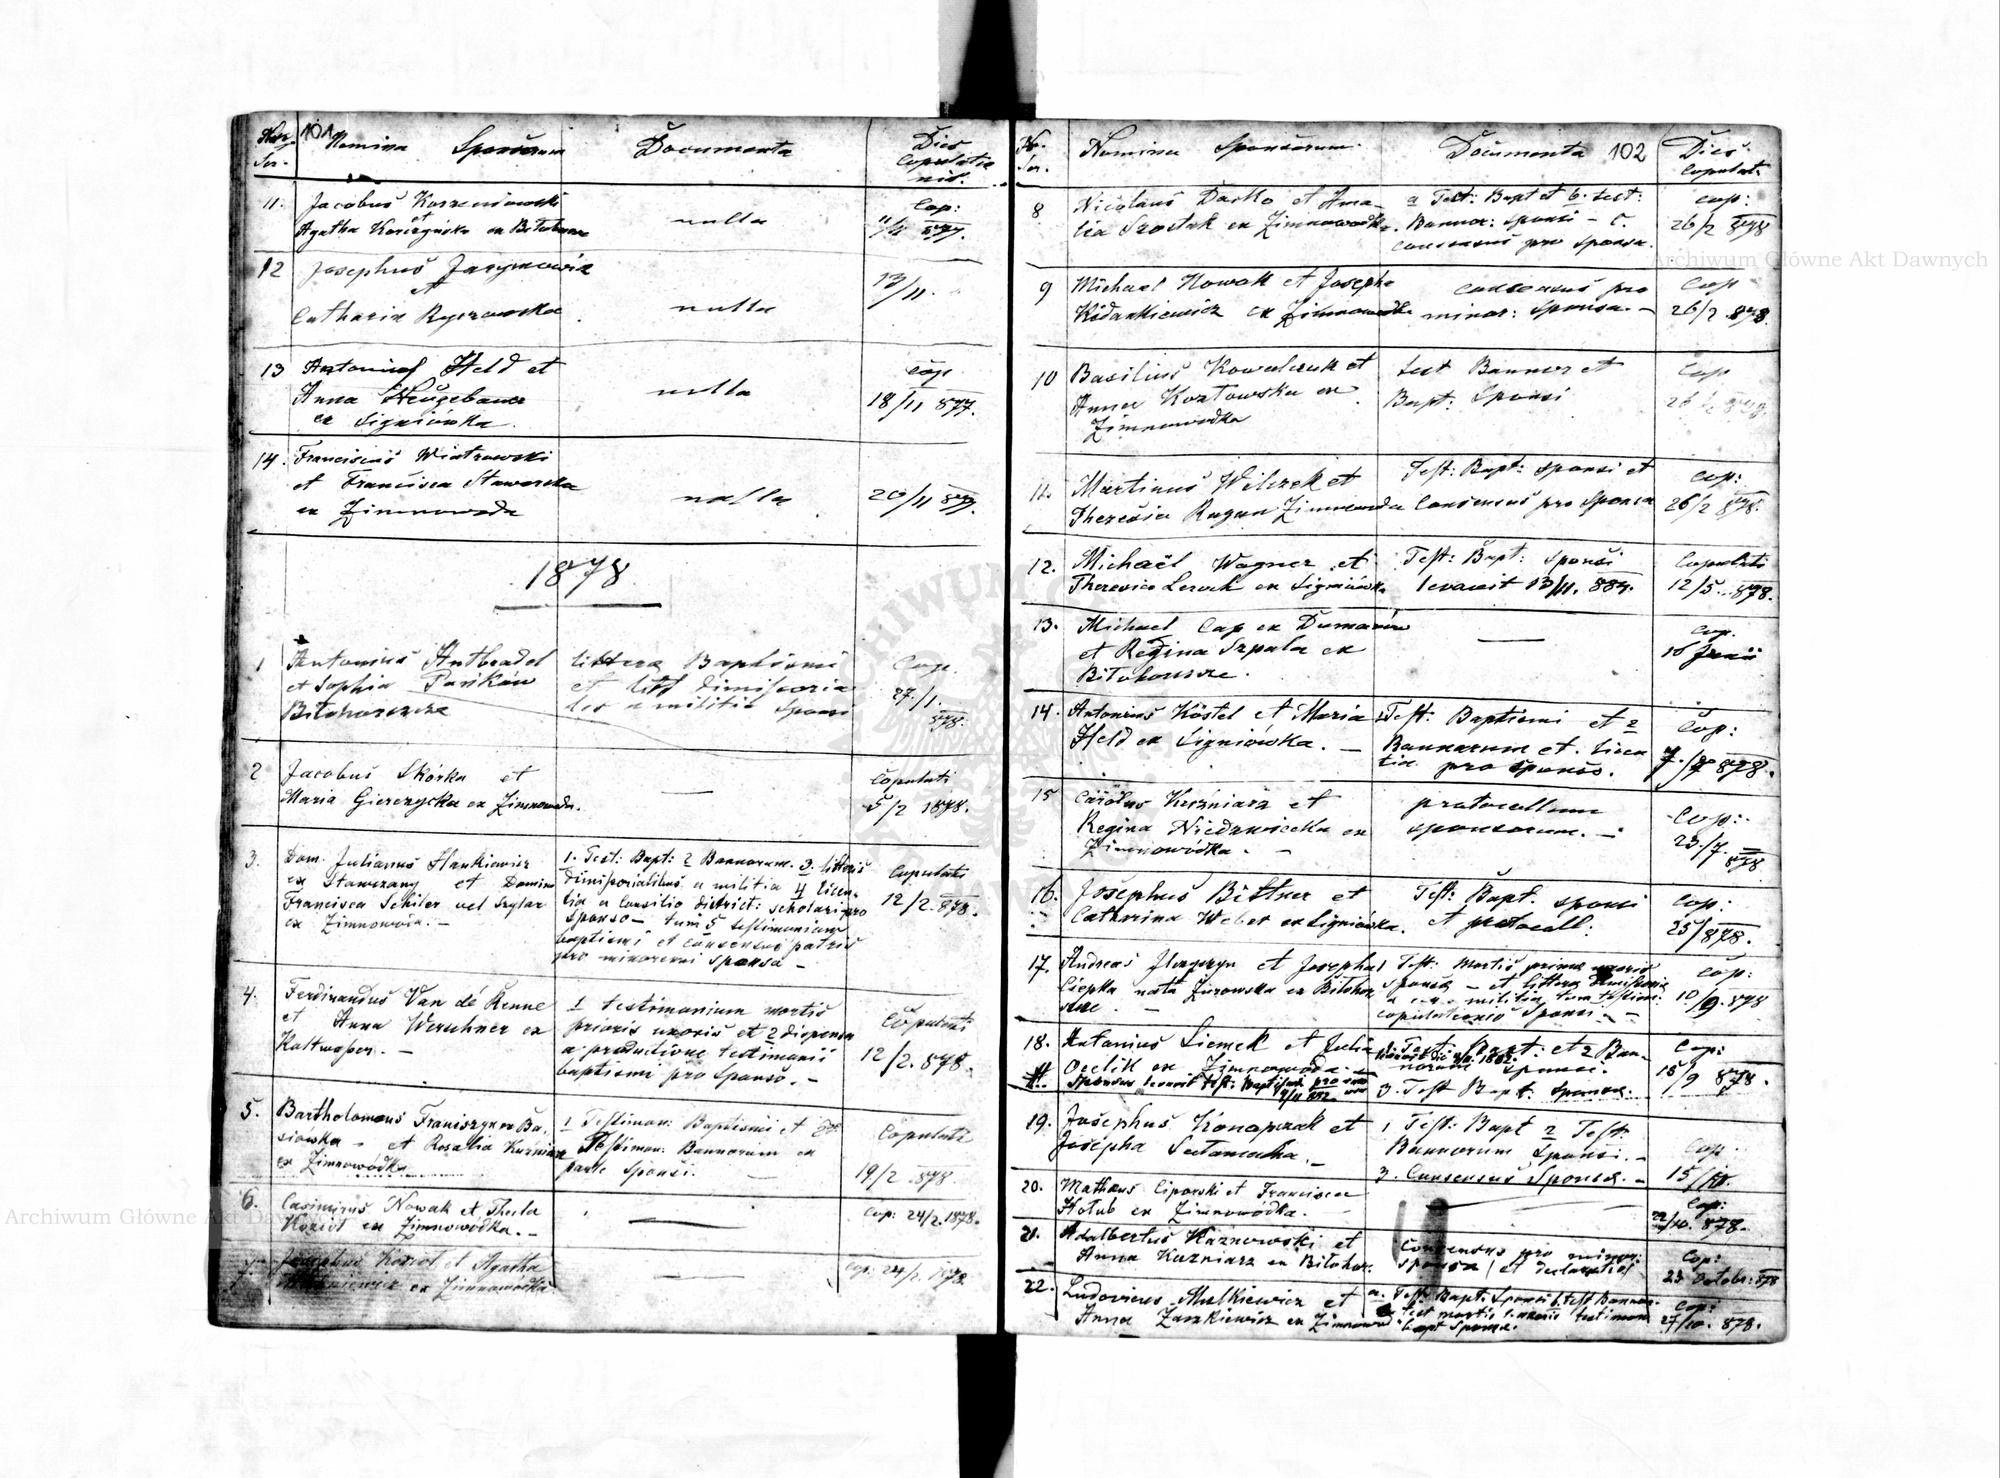 101
Nomina Sponsorum
Documenta
Dies
Copulatio
nis.
11.
Jacobus Korzeniowski
et
Agatha ex Bilohorcze
nulla
Cop:
877.
12
Josephus
et
Catharina
nulla
13/11.
13
Antonius Held et
Anna Neugebauer
ex Signiówka.
nulla
Cop
18/11 877.
14.
Franciscus Wiatrowski
et Francisca
ex Zimnowoda
nulla
20/11 877.
1878
1
Antonius
et Sophia
Bilohorcze
littera Baptismi
et litt dimissoria
les a militia Sponsi
Cop.
27./1.
878.
2
Jacobus Skórka et
Maria Gierczycka ex Zimnowoda.
—
Copulati
5/2 1878.
3.
Dom. Julianus Hankiewicz
ex Stawczany et Domina
Francisca Schiler vel Szylar
ex Zimnowoda. —
1. Test: Bapt: 2 Bannorum. 3. litteris
dimissorialibus a militia 4 licen-
tia a Consilio district: scholari pro
sponso — tum 5 testimonium
baptismi et consensus patris
pro minorenni sponsa —
Copulati
12/2. 878.
4.
Ferdinandus Van dé Kenne
et Anna Werschner ex
Kaltwasser. —
1 testimonium mortis
prioris uxoris et 2 dispensa
a productione testimonii
baptismi pro sponso. —
Copulati
12/2. 878.
5.
Bartholomeus Franiszyn ex Ba-
siówka — et Rosalia Kuźniar
ex Zimnowódka
1 Testimon: Baptismi et
Testimon: Bannorum ex
parte Sponsi. —
Copulati
19/2 878.
6.
Casimirus Nowak et Thecla
Kozioł ex Zimnowódka. —
—
Cop: 24/2. 1878.
7.
Josephus Kozioł et Agatha
ex Zimnowódka
—
Cop: 24/2. 1878
Nomina Sponsorum.
Documenta 102
Dies
Copulat.
8
Nicolaus Dasko et Ama-
lia Szostak ex Zimnowódka.
a Test: Bapt et b. test:
Bannor: sponsi — c.
consensus pro sponsa.
cop:
26/2 878
9
Michael Nowak et Josepha
ex Zimnowódka
consensus pro
minor: sponsa. —
Cop
26/2 878.
10
Basilius Kowalczuk et
Anna Kozłowska ex
Zimnowódka
test Bannor et
Bapt: Sponsi
Cop
26/2 878.
11.
Martinus Wilczek et
Theresia Zimnowoda
Test: Bapt: sponsi et
Consensus pro Sponsa
Cop:
26/2 878.
12.
Michaël Wagner et
Theresia ex Signiówka
Test: Bapt: sponsi
levavit 13/11. 884.
Copulati
12/5. 878.
13.
Michael Cap ex
et Regina Szpala ex
Bilohorszcze.
—
Cop.
14.
Antonius Köstel et Maria
Held ex Signiówka. —
1. Test: Baptismi et 2
Bannorum et licen
tia pro sponso.
Cop:
7./7 878.
15
Carolus Kuźniarz et
Regina Niedzwiecka ex
Zimnowódka. —
protocollum
sponsorum. —
Cop:
23./7.
878
16.
Josephus Bittner et
Catharina Weber ex Signiówka.
Test: Bapt. sponsi
et protocoll:
Cop:
25/ 878.
17.
Andreas et Josepha
Czepka nata Żurowska ex Bilohor
szcze. —
1 Test: Mortis primae uxoris
sponsi — et littera dimissoria
a militia tum testimo:
copulationis Sponsi. —
Cop:
10/9. 878
18.
Antonius Siemek et Julia
ex Zimnowoda. —
Sponsus levavit test: Baptismi
1. Test. Bapt: et 2 Ban-
norum Sponsi.
3. Test Bapt: sponsae.
Cop:
15/9 878.
19.
Josephus Konopzak et
Josepha
1 Test: Bapt 2 Test:
Bannorum Sponsi. —
3. Consensus Sponsae. —
Cop
15/10.
20.
Matheus Liporski et Francisca
Hołub ex Zimnowódka. —
—
Cop:
22/10. 878.
21.
Adalbertus Kaznowski et
Anna Kuzniarz ex Bilohor.
Consensus pro minor:
sponsa et declaratio
Cop:
23 Octobr: 878
22.
Ludovicus Mulkiewicz et
Anna ex Zimnowod
a. Test Bapt: Sponsi b. test Bannor.
test mortis testimon
bapt Sponsae.
Cop:
27/10. 878.
Archiwum Główne Akt Dawnych
Archiwum Główne Akt Dawnych